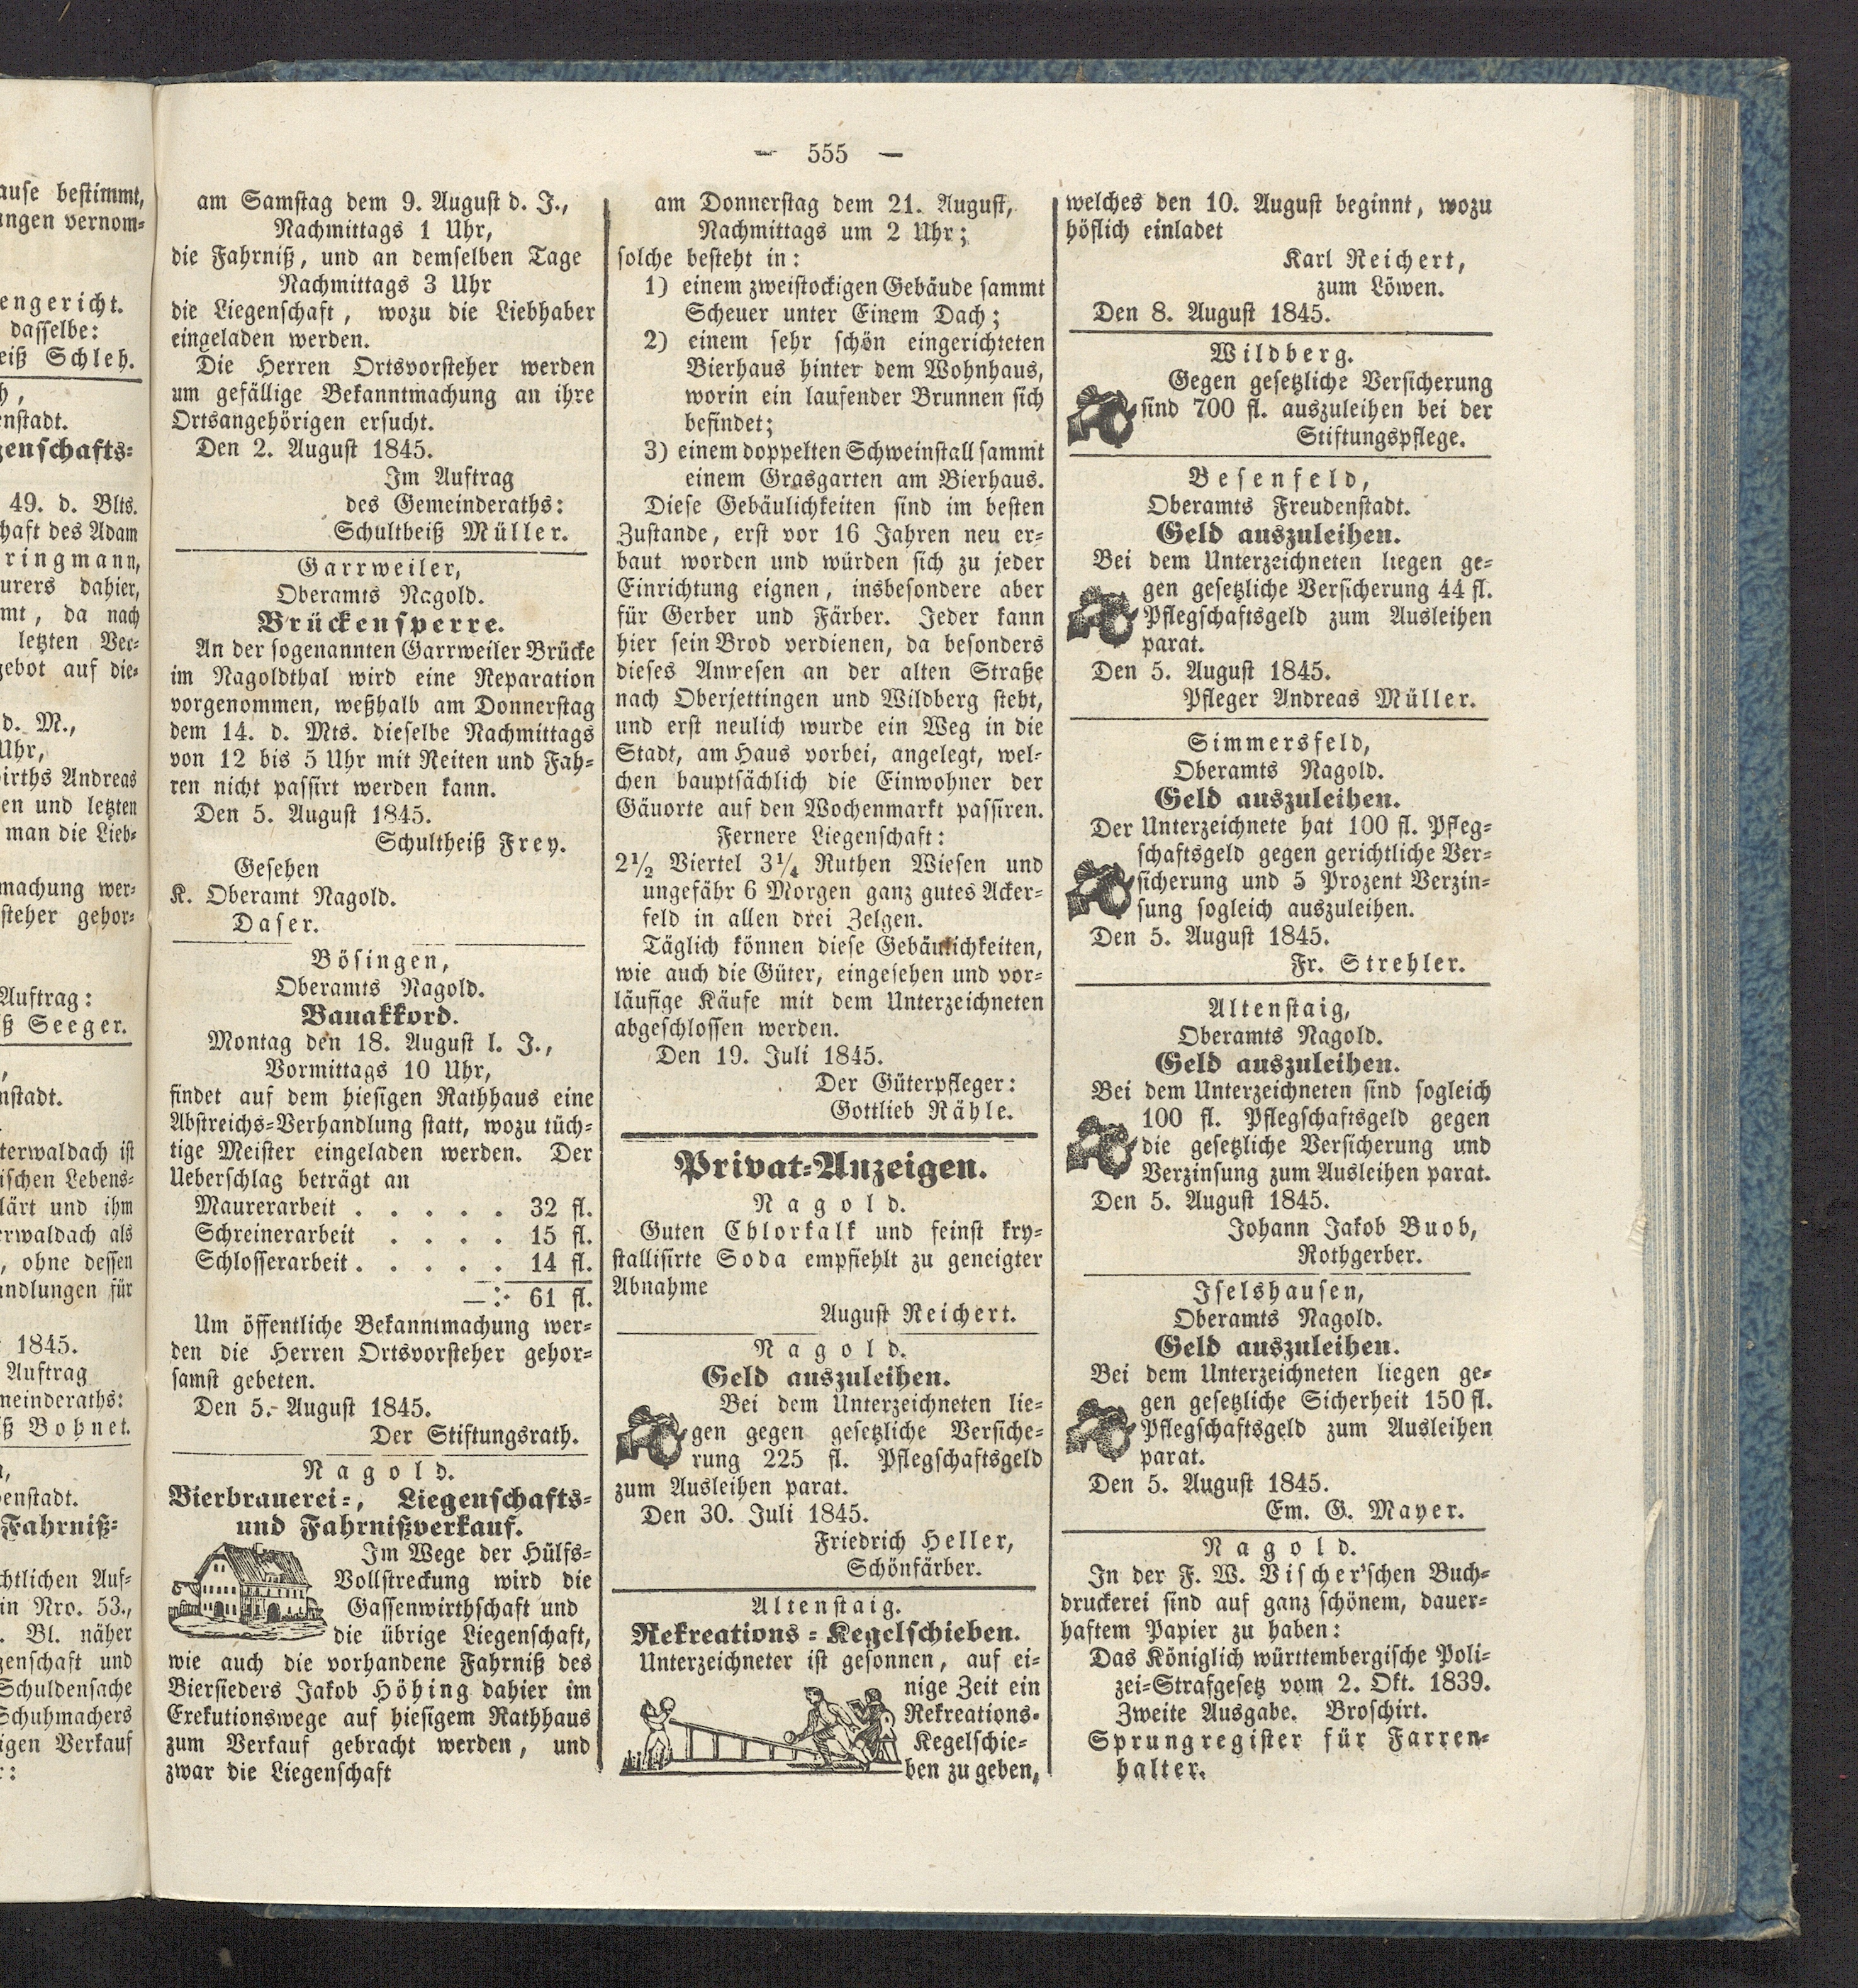 ause bestimmt,
ungen vernom-
engericht.
dasselbe:
eiß Schleh.
enstadt.
genschafts-
49. d. Blts.
haft des Adam
ringmann,
urers dahier,
mt, da nach
letzten Ver-
gebot auf die-
d. M.,
Uhr,
irths Andreas
en und letzten
man die Lieb-
machung wer-
steher gehor-
Auftrag:
ß Seeger.
nstadt.
terwaldach ist
ischen Lebens-
lärt und ihm
erwaldach als
, ohne dessen
andlungen für
1845.
Auftrag
meinderaths:
ß Bohnet.
enstadt.
Fahrniß-
chtlichen Auf-
in Nro. 53.,
. Bl. näher
genschaft und
Schuldensache
Schuhmachers
igen Verkauf
— 555 —
am Samstag dem 9. August d. J.,
Nachmittags 1 Uhr,
die Fahrniß, und an demselben Tage
Nachmittags 3 Uhr
die Liegenschaft, wozu die Liebhaber
eingeladen werden.
Die Herren Ortsvorsteher werden
um gefällige Bekanntmachung an ihre
Ortsangehörigen ersucht.
Den 2. August 1845.
Im Auftrag
des Gemeinderaths:
Schultheiß Müller.
Garrweiler,
Oberamts Nagold.
Brückensperre.
An der sogenannten Garrweiler Brücke
im Nagoldthal wird eine Reparation
vorgenommen, weßhalb am Donnerstag
dem 14. d. Mts. dieselbe Nachmittags
von 12 bis 5 Uhr mit Reiten und Fah-
ren nicht passirt werden kann.
Den 5. August 1845.
Schultheiß Frey.
Gesehen
K. Oberamt Nagold.
Daser.
Bösingen,
Oberamts Nagold.
Bauakkord.
Montag den 18. August l. J.,
Vormittags 10 Uhr,
findet auf dem hiesigen Rathhaus eine
Abstreichs-Verhandlung statt, wozu tüch-
tige Meister eingeladen werden. Der
Ueberschlag beträgt an
Maurerarbeit . . . . . 32 fl.
Schreinerarbeit . . . . 15 fl.
Schlosserarbeit . . . . . 14 fl.
—:· 61 fl.
Um öffentliche Bekanntmachung wer-
den die Herren Ortsvorsteher gehor-
samst gebeten.
Den 5. August 1845.
Der Stiftungsrath.
Nagold.
Bierbrauerei-, Liegenschafts-
und Fahrnißverkauf.
Im Wege der Hülfs-
Vollstreckung wird die
Gassenwirthschaft und
die übrige Liegenschaft,
wie auch die vorhandene Fahrniß des
Biersieders Jakob Höhing dahier im
Exekutionswege auf hiesigem Rathhaus
zum Verkauf gebracht werden, und
zwar die Liegenschaft
am Donnerstag dem 21. August,
Nachmittags um 2 Uhr;
solche besteht in:
1) einem zweistockigen Gebäude sammt
Scheuer unter Einem Dach;
2) einem sehr schön eingerichteten
Bierhaus hinter dem Wohnhaus,
worin ein laufender Brunnen sich
befindet;
3) einem doppelten Schweinstall sammt
einem Grasgarten am Bierhaus.
Diese Gebäulichkeiten sind im besten
Zustande, erst vor 16 Jahren neu er-
baut worden und würden sich zu jeder
Einrichtung eignen, insbesondere aber
für Gerber und Färber. Jeder kann
hier sein Brod verdienen, da besonders
dieses Anwesen an der alten Straße
nach Oberjettingen und Wildberg steht,
und erst neulich wurde ein Weg in die
Stadt, am Haus vorbei, angelegt, wel-
chen hauptsächlich die Einwohner der
Gäuorte auf den Wochenmarkt passiren.
Fernere Liegenschaft:
2½ Viertel 3¼ Ruthen Wiesen und
ungefähr 6 Morgen ganz gutes Acker-
feld in allen drei Zelgen.
Täglich können diese Gebäulichkeiten,
wie auch die Güter, eingesehen und vor-
läufige Käufe mit dem Unterzeichneten
abgeschlossen werden.
Den 19. Juli 1845.
Der Güterpfleger:
Gottlieb Rähle.
Privat-Anzeigen.
Nagold.
Guten Chlorkalk und feinst kry-
stallisirte Soda empfiehlt zu geneigter
Abnahme
August Reichert.
Nagold.
Geld auszuleihen.
Bei dem Unterzeichneten lie-
gen gegen gesetzliche Versiche-
rung 225 fl. Pflegschaftsgeld
zum Ausleihen parat.
Den 30. Juli 1845.
Friedrich Heller,
Schönfärber.
Altenstaig.
Rekreations-Kegelschieben.
Unterzeichneter ist gesonnen, auf ei-
nige Zeit ein
Rekreations-
Kegelschie-
ben zu geben,
welches den 10. August beginnt, wozu
höflich einladet
Karl Reichert,
zum Löwen.
Den 8. August 1845.
Wildberg.
Gegen gesetzliche Versicherung
sind 700 fl. auszuleihen bei der
Stiftungspflege.
Besenfeld,
Oberamts Freudenstadt.
Geld auszuleihen.
Bei dem Unterzeichneten liegen ge-
gen gesetzliche Versicherung 44 fl.
Pflegschaftsgeld zum Ausleihen
parat.
Den 5. August 1845.
Pfleger Andreas Müller.
Simmersfeld,
Oberamts Nagold.
Geld auszuleihen.
Der Unterzeichnete hat 100 fl. Pfleg-
schaftsgeld gegen gerichtliche Ver-
sicherung und 5 Prozent Verzin-
sung sogleich auszuleihen.
Den 5. August 1845.
Fr. Strehler.
Altenstaig,
Oberamts Nagold.
Geld auszuleihen.
Bei dem Unterzeichneten sind sogleich
100 fl. Pflegschaftsgeld gegen
die gesetzliche Versicherung und
Verzinsung zum Ausleihen parat.
Den 5. August 1845.
Johann Jakob Buob,
Rothgerber.
Iselshausen,
Oberamts Nagold.
Geld auszuleihen.
Bei dem Unterzeichneten liegen ge-
gen gesetzliche Sicherheit 150 fl.
Pflegschaftsgeld zum Ausleihen
parat.
Den 5. August 1845.
Em. G. Mayer.
Nagold.
In der F. W. Vischer'schen Buch-
druckerei sind auf ganz schönem, dauer-
haftem Papier zu haben:
Das Königlich württembergische Poli-
zei-Strafgesetz vom 2. Okt. 1839.
Zweite Ausgabe. Broschirt.
Sprungregister für Farren-
halter.